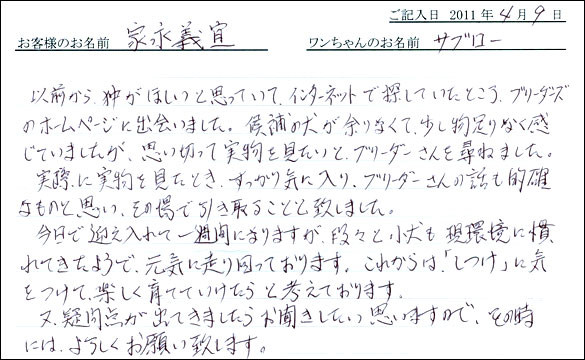 ご記入日 2011年4月9日
お客様のお名前 家永義宣 ワンちゃんのお名前 サブロー
以前から、狆がほしいと思っていて、インターネットで探していたところ、ブリーダーズ
のホームページに出会いました。候補の犬が余りなくて、少し物足りなく感
じていましたが、思い切って実物を見たいと、ブリーダーさんを尋ねました。
実際に実物を見たとき、すっかり気に入り、ブリーダーさんの話も的確
なものと思い、その場で引き取ることと致しました。
今日で迎え入れて一週間になりますが、段々と小犬も現環境に慣
れてきたようで、元気に走り回っております。これからは、「しつけ」に気
をつけて、楽しく育てていけたらと考えております。
又、疑問点が出てきましたらお聞きしたいと思いますので、その時
には、よろしくお願い致します。